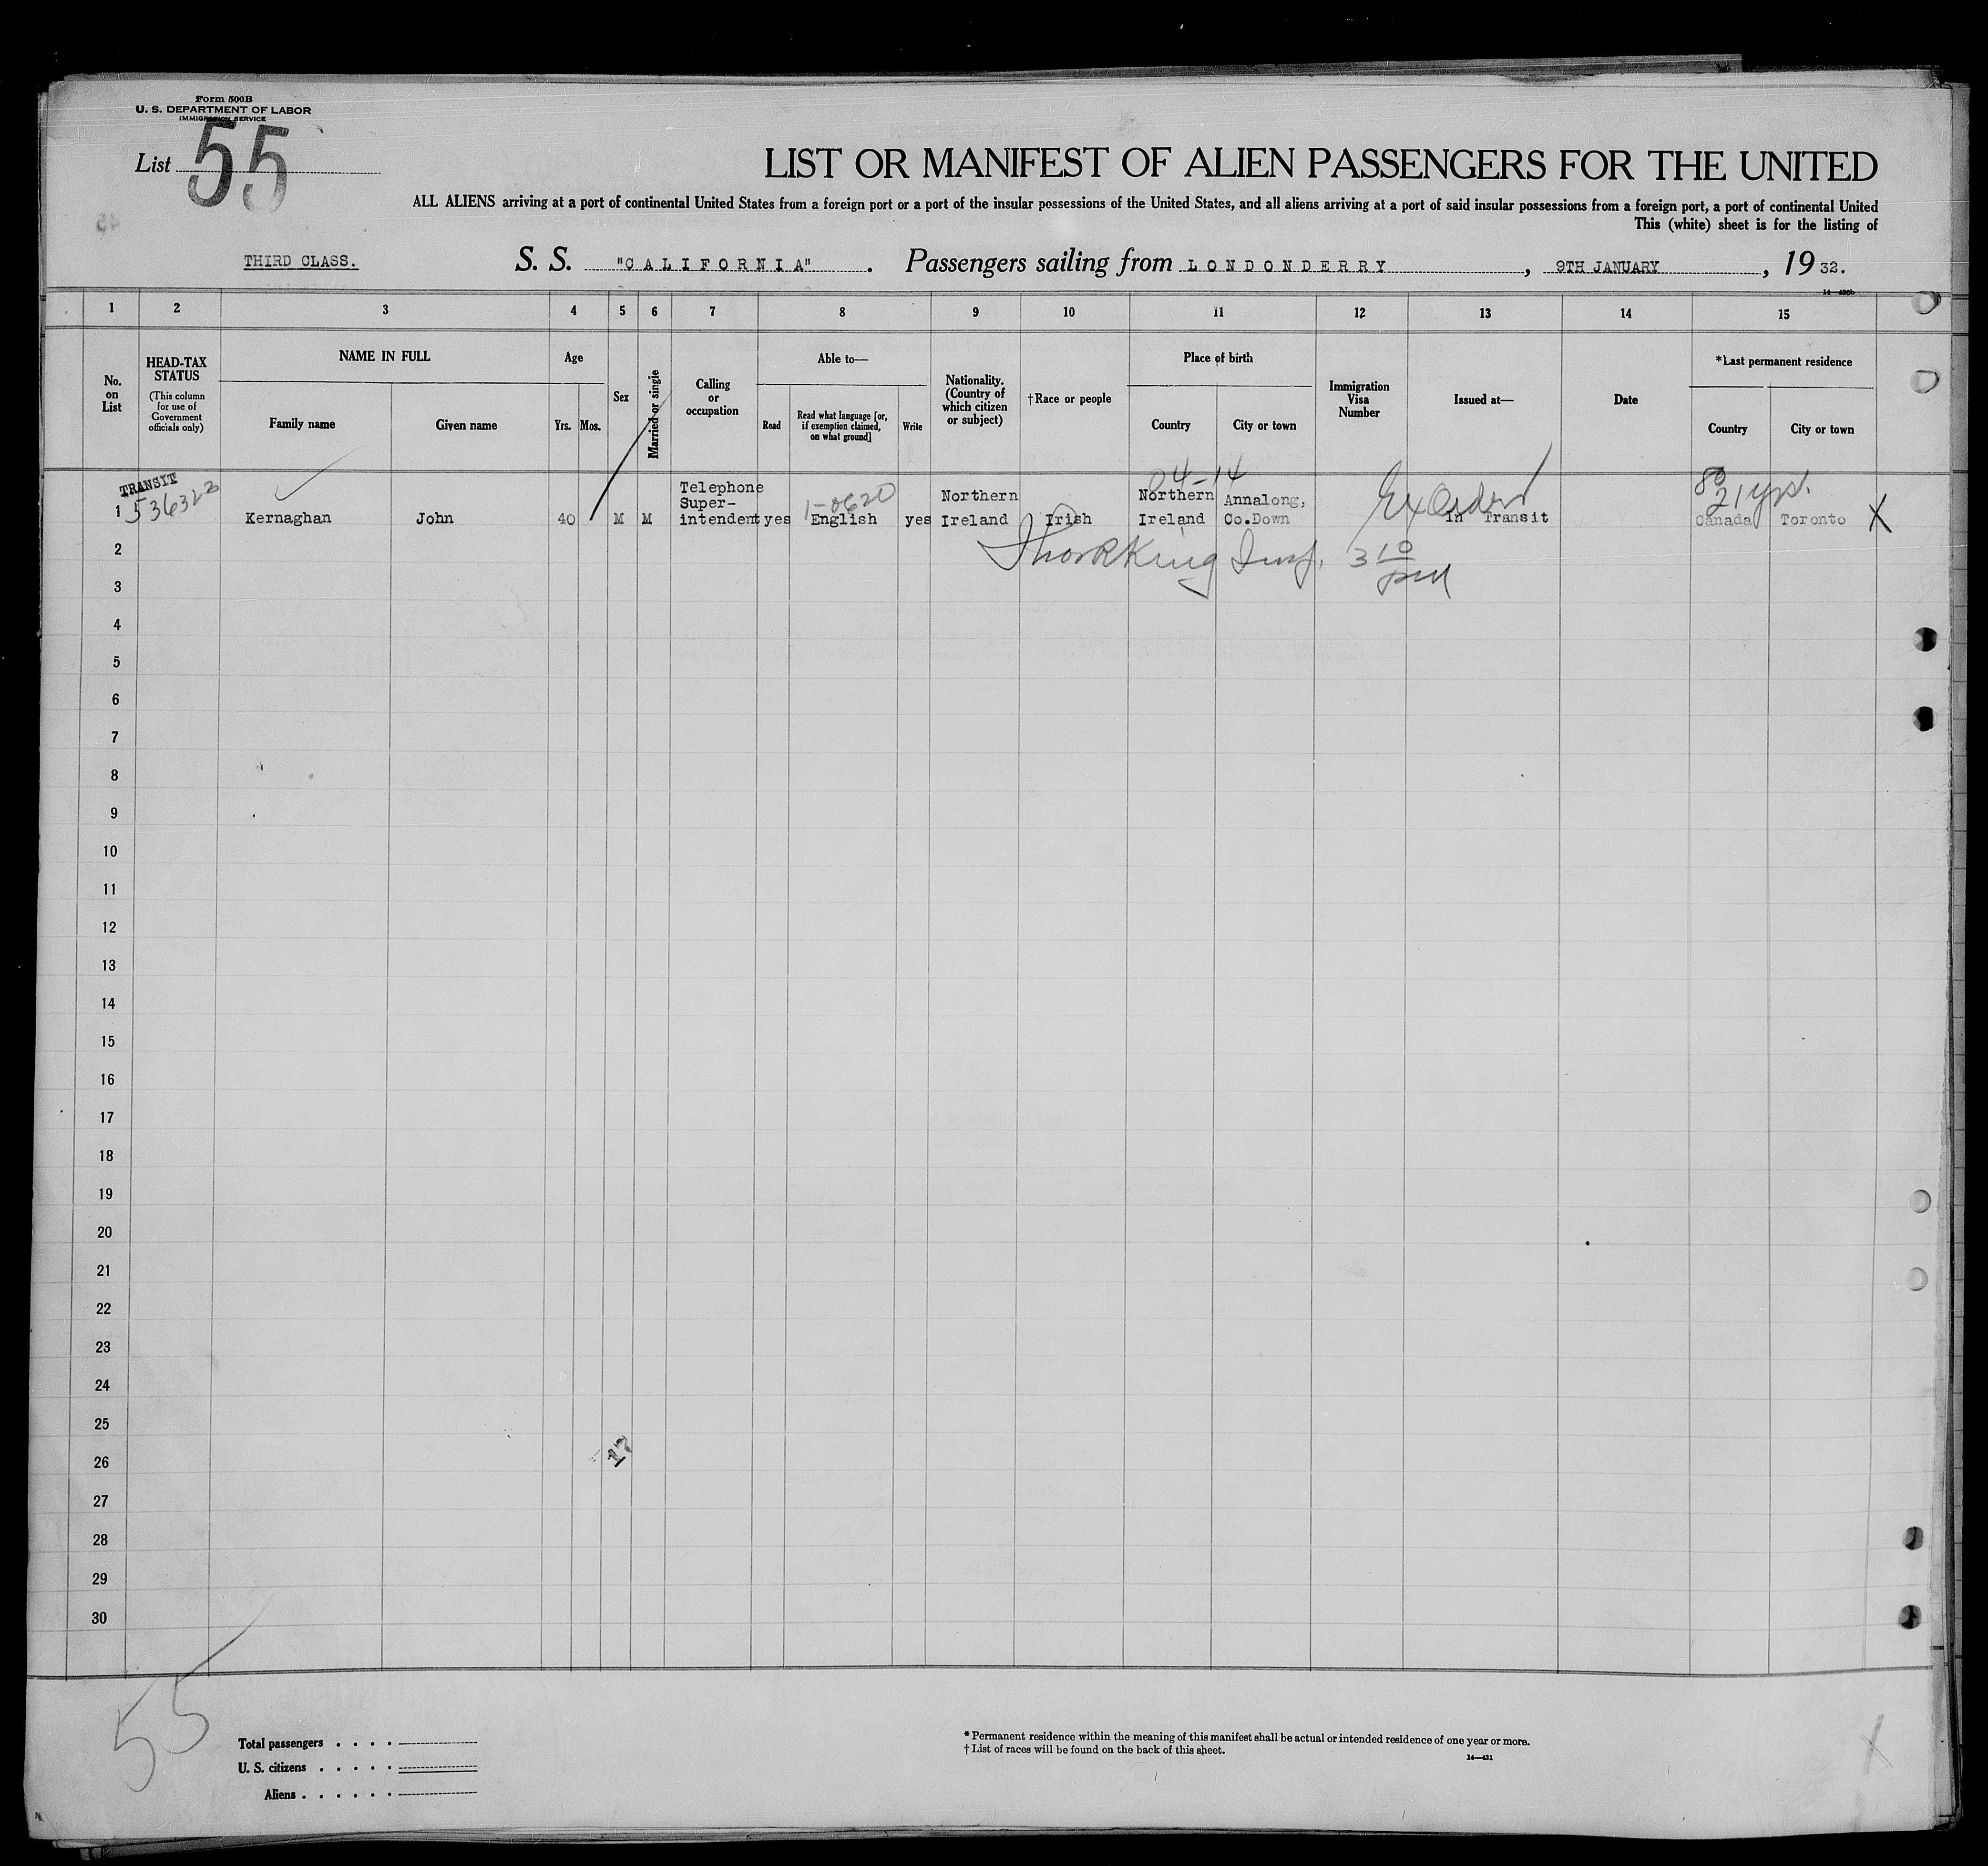 Form 500B
U. S. DEPARTMENT OF LABOR
IMMIGRATION SERVICE
List 55
LIST OR MANIFEST OF ALIEN PASSENGERS FOR THE UNITED
ALL ALIENS arriving at a port of continental United States from a foreign port or a port of the insular possessions of the United States, and all aliens arriving at a port of said insular possessions from a foreign port, a port of continental United
This (white) sheet is for the listing of
THIRD CLASS. S. S. "CALIFORNIA". Passengers sailing from LONDONDERRY, 9TH JANUARY, 1932.
1 2 3 4 5 6 7 8 9 10 11 12 13 14 15
No. on List
HEAD-TAX STATUS
(This column for use of Government officials only)
NAME IN FULL
Family name Given name
Age
Yrs. Mos.
Sex
Married or single
Calling or occupation
Able to—
Read
Read what language [or, if exemption claimed, on what ground]
Write
Nationality. (Country of which citizen or subject)
†Race or people
Place of birth
Country City or town
Immigration Visa Number
Issued at—
Date
*Last permanent residence
Country City or town
TRANSIT
04-14
21 yrs.
1-0620
Telephone Northern Northern Annalong,
Super-
1 Kernaghan John 40 M M intendent yes English yes Ireland Irish Ireland Co.Down In Transit Canada Toronto X
2
3 10 pm
3
4
5
6
7
8
9
10
11
12
13
14
15
16
17
18
19
20
21
22
23
24
25
26
27
28
29
30
55
Total passengers . . . .
U. S. citizens . . . . .
Aliens . . . . . .
* Permanent residence within the meaning of this manifest shall be actual or intended residence of one year or more.
† List of races will be found on the back of this sheet.
14—431